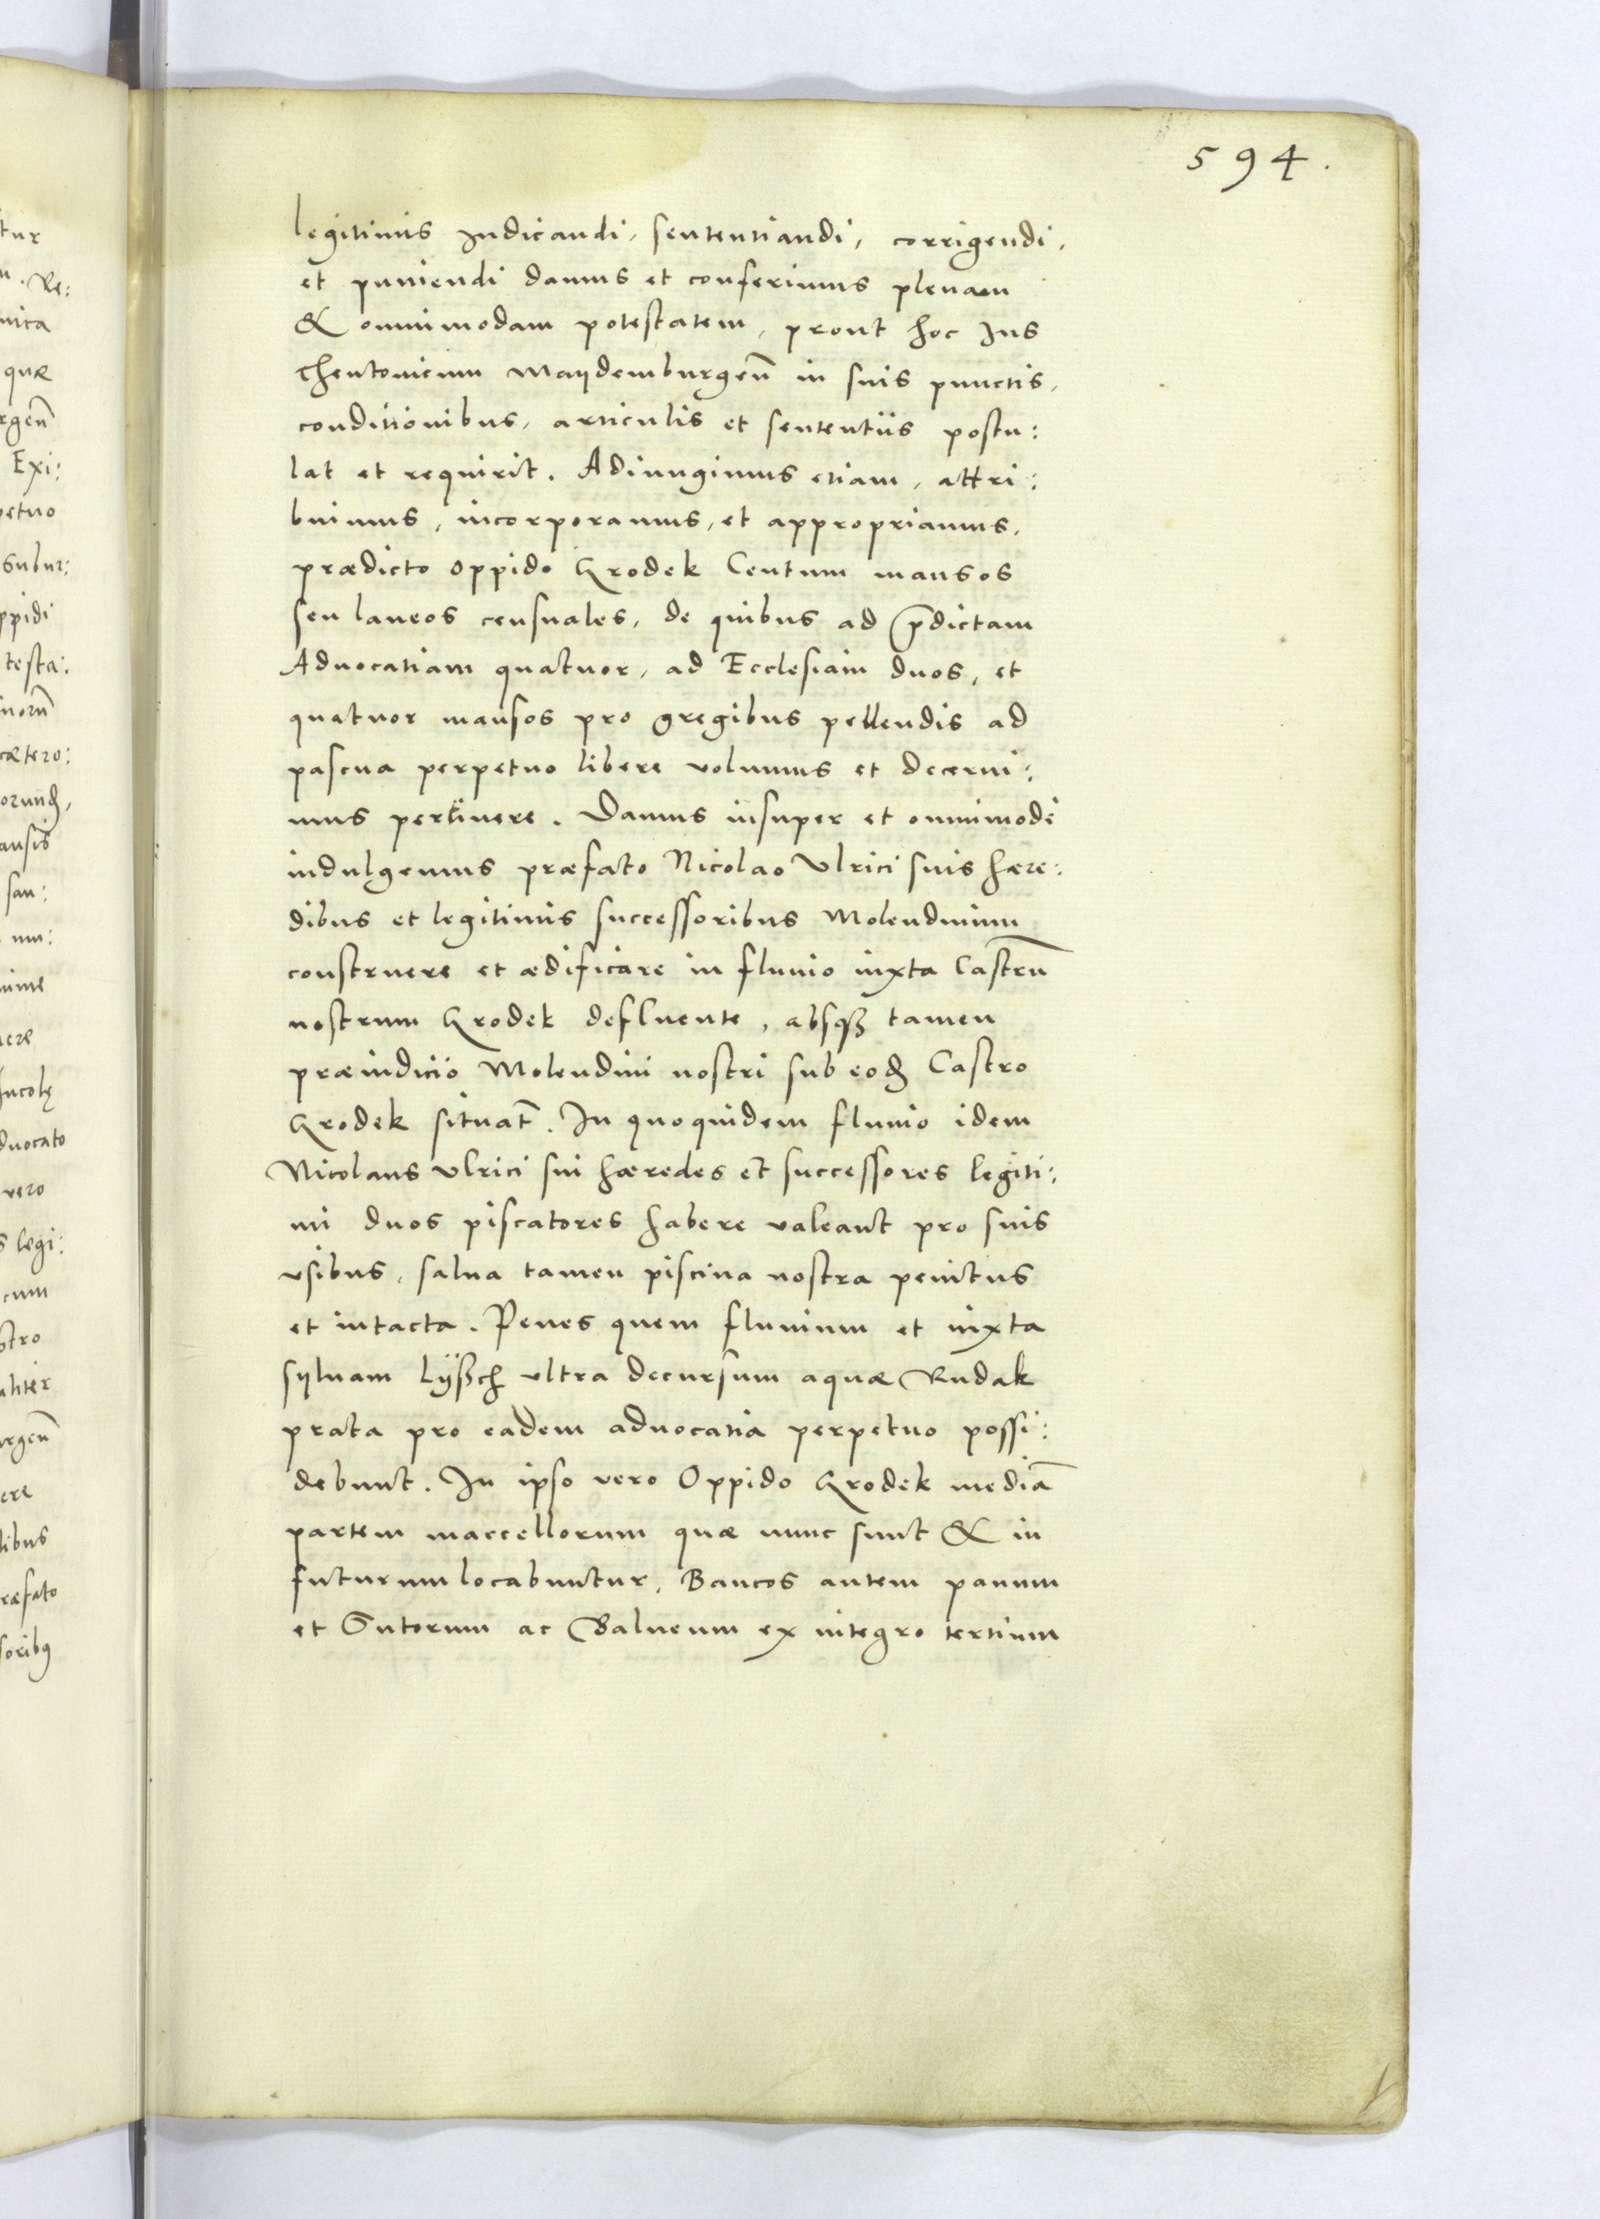 594.
legitimis Iudicandi, sententiandi, corrigendi,
et puniendi damus et conferimus plenam
& omnimodam potestatem, prout hoc Ius
Theutonicum Maÿdemburgeñ in suis punctis,
conditionibus, articulis et sententiis postu:
lat et requirit. Adiungimus etiam, attri:
buimus, incorporamus, et appropriamus,
prædicto oppido Grodek Centum mansos
seu laneos censuales, de quibus ad p̄dictam
Advocatiam quatuor, ad Ecclesiam duos, et
quatuor mansos pro gregibus pellendis ad
pascua perpetuo libere volumus et decerni:
mus pertinere. Damus insuper et omnimode
indulgemus præfato Nicolao Vlrici suis hære:
dibus et legitimis successoribus Molendinum
construere et ædificare in fluuio iuxta Castrū
nostrum Grodek defluente, absqꝫ tamen
præiudicio Molendini nostri sub eod̄ Castro
Grodek situat̄. In quoquidem fluuio idem
Nicolaus Vlrici sui hæredes et successores legiti:
mi duos piscatores habere valeant pro suis
vsibus, salua tamen piscina nostra penitus
et intacta. Penes quem fluuium et iuxta
syluam Lÿßch vltra decursum aquæ Rudak
prata pro eadem aduocatia perpetuo possi:
debunt. In ipso vero Oppido Grodek mediā
partem maccellorum quæ nunc sunt & in
futurum locabuntur, Bancos autem panum
et Sutorum ac Balneum ex integro tertium